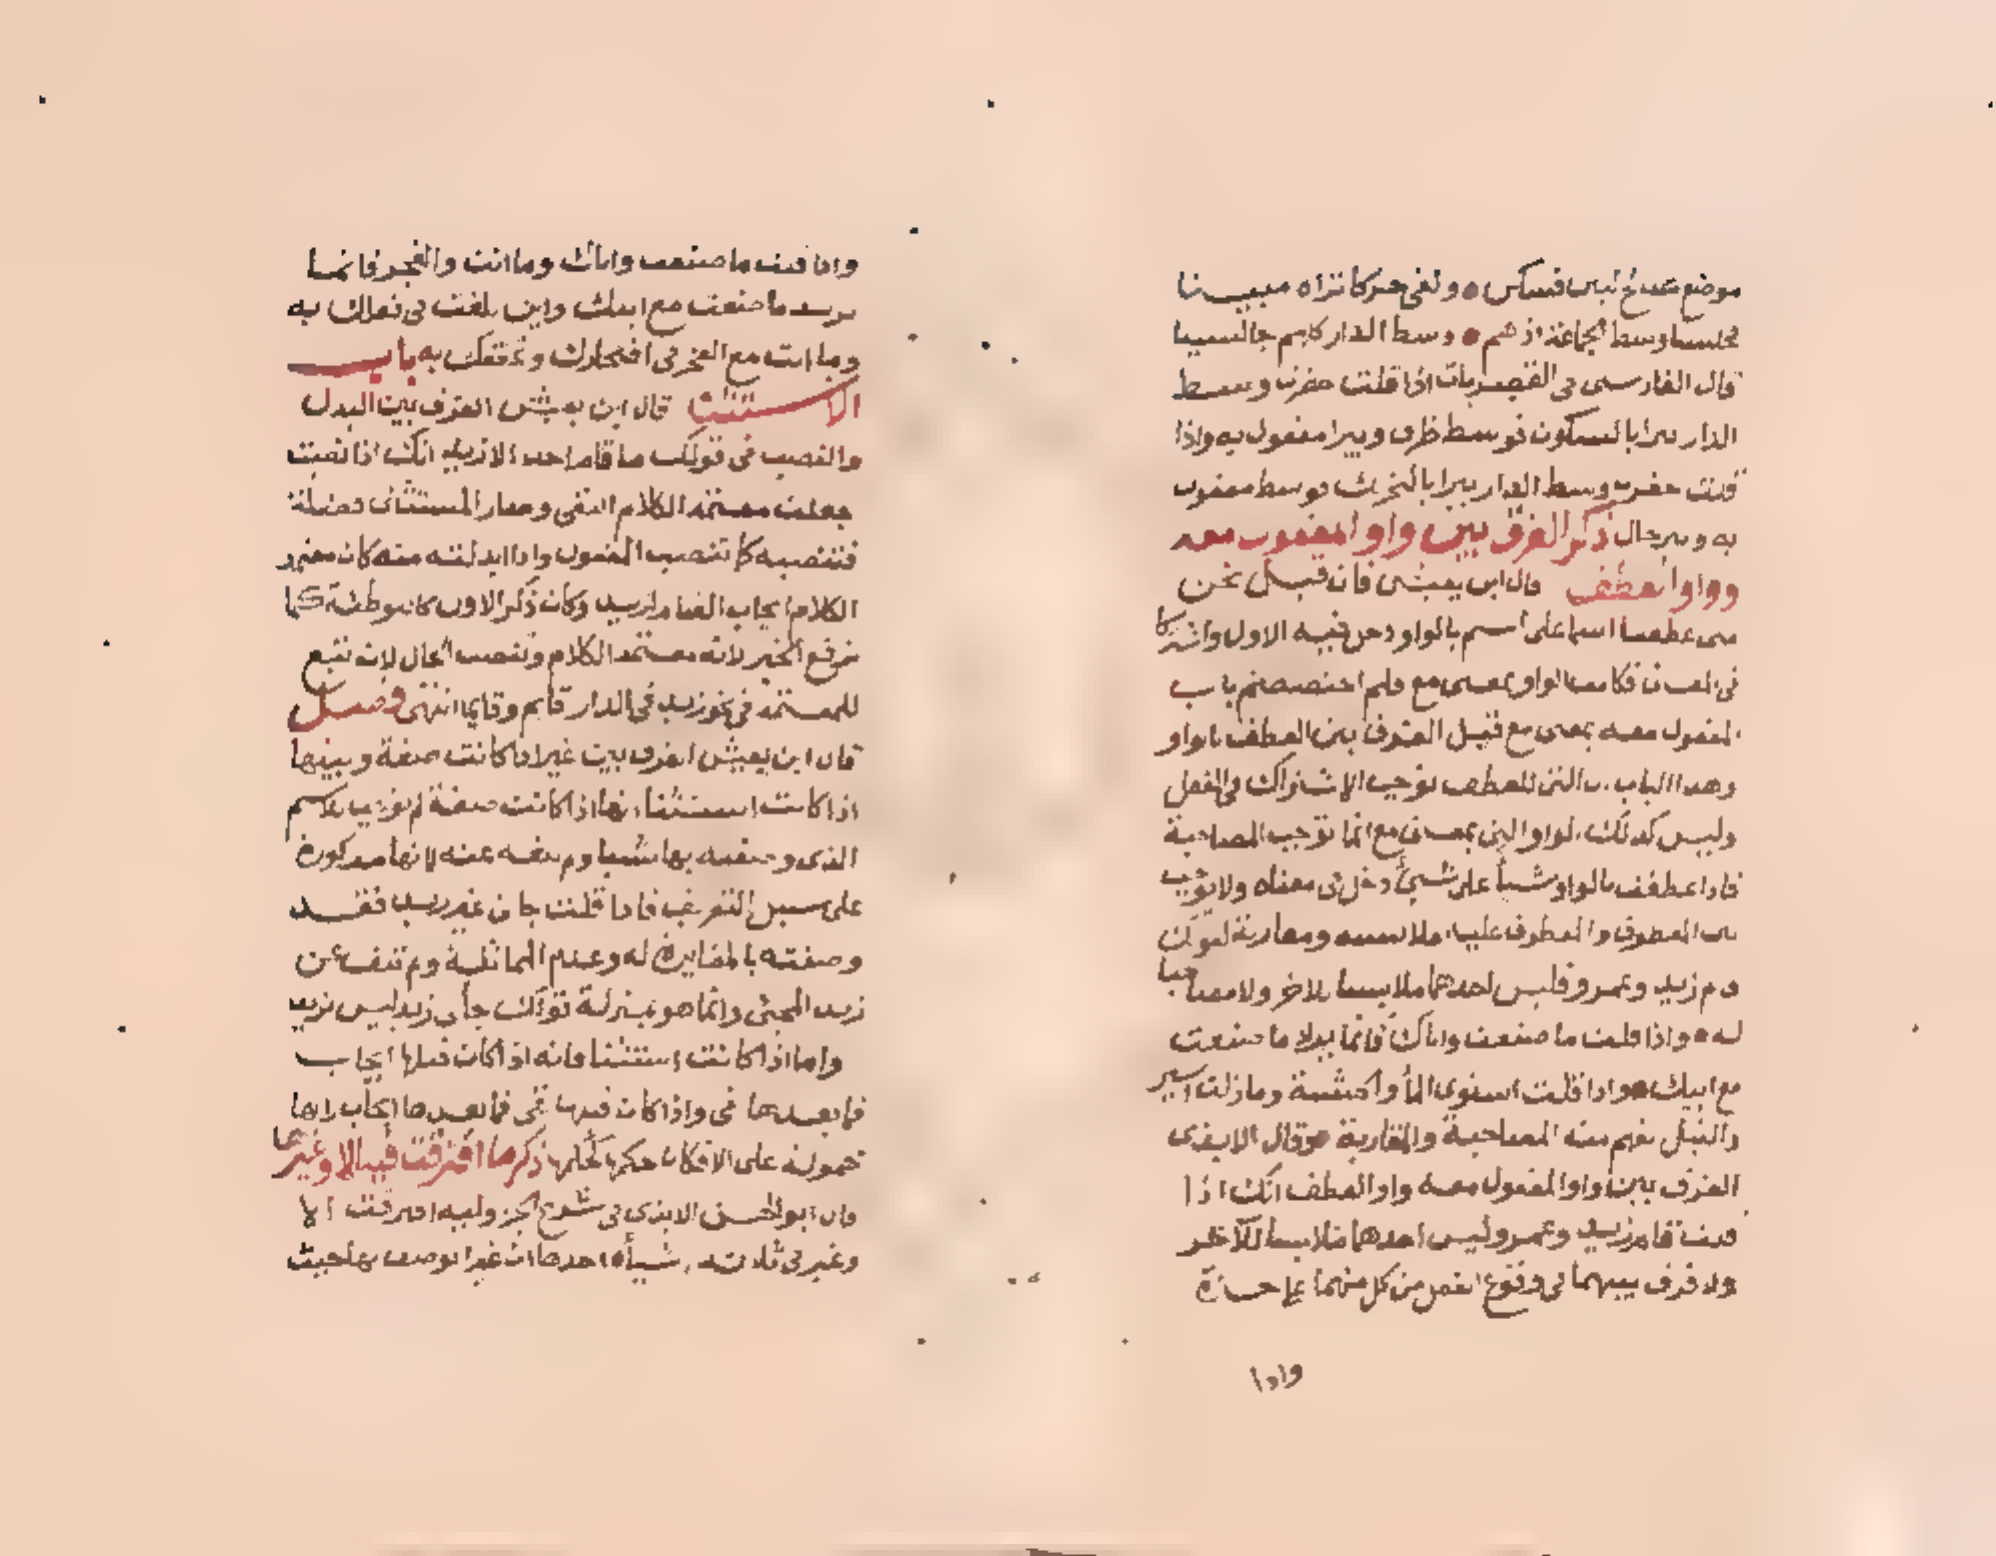 موضع صالح لبين فسكن ولفي حركا تراه مبينا
مجلسنا وسط الجماعة اذ هم وسط الدار كلهم جالسينا
قال الفارسي في القصريات اذا قلت حفرت وسط
الدار بيرا بالسكون فوسط ظرف وبيرا مفعول به واذا
قلت حفرت وسط الدار بيرا بالتحريك فوسط مفعول
به وبير حال ذكر الفرق بين واو المفعول معه
وواو العطف قال ابن يعيش فان قيل نحن
متى عطفنا اسما على اسم بالواو دخل فيه الاول واشتركا
في المعنى فكانت الواو بمعنى مع فلم اختصصتم باب
المفعول معه بمعنى مع قيل الفرق بين العطف بالواو
وهذا الباب ان التي للعطف توجب الاشتراك في الفعل
وليس كذلك الواو التي بمعنى مع انما توجب المصاحبة
فاذا عطفت بالواو شيأ على شيئ دخل في معناه ولا توجب
بين المعطوف والمعطوف عليه ملابسه ومقاربة كقولك
قام زيد وعمرو فليس احدهما ملابسا للاخر ولا مصاحبا
له واذا قلت ما صنعت واباك فانما يراد ما صنعت
مع ابيك واذا قلت استوى الما والخشبة وما زلت اسير
والنيل يفهم منه المصاحبة والمقاربة وقال الابذى
الفرق بين واو المفعول معه واو العطف انك اذا
قلت قام زيد وعمرو ليس احدهما ملابسا للاخر
ولا فرق بينهما في وقوع الفعل من كل منهما على حدة
واذا
واذا قلت ما صنعت واباك وما انت والفخر فانما
يريد ما صنعت مع ابيك واين بلغت في فعلك به
وما انت مع الفخر في افتخارك وتحققك به باب
الاستثنا قال ابن يعيش الفرق بين البدل
والنصب في قولك ما قام احد الا زيد انك اذا نصبت
جعلت معتمد الكلام النفي وصار المستثنى فضلة
فتنصبه كما تنصب المفعول واذا ابدلته منه كان معتمد
الكلام ايجاب القيام لزيد وكان ذكر الاول كالتوطئة كما
ترفع الخبر لانه معتمد الكلام وتنصب الحال لانه تبع
للمعتمد في نحو زيد في الدار قايم وقايما انتهى فصل
قال ابن يعيش الفرق بين غير اذا كانت صفة وبينها
اذا كانت استثناء انها اذا كانت صفة لم توجب للاسم
الذى وصفته بها شيا ولم تنفه عنه لانها مذكورة
على سبيل التعريف فاذا قلت جانى غير زيد فقد
وصفته بالمغايرة له وعدم المماثلة ولم تنف عن
زيد المجئ وانما هو بمنزلة قولك جأنى زيد ليس زيد
واما اذا كانت استثنا فانه اذا كان قبلها ايجاب
فما بعدها نفى واذا كان قبلها نفى فما بعدها ايجاب لانها
محمولة على الا فكان حكمها كحكمها ذكر ما افترقت فيه الا وغير
قال ابو الحسن الابذى في شرح الجزوليه افترقت الا
وغير في ثلاثة اشيأ احدها ان غيرا توصف بها حيث